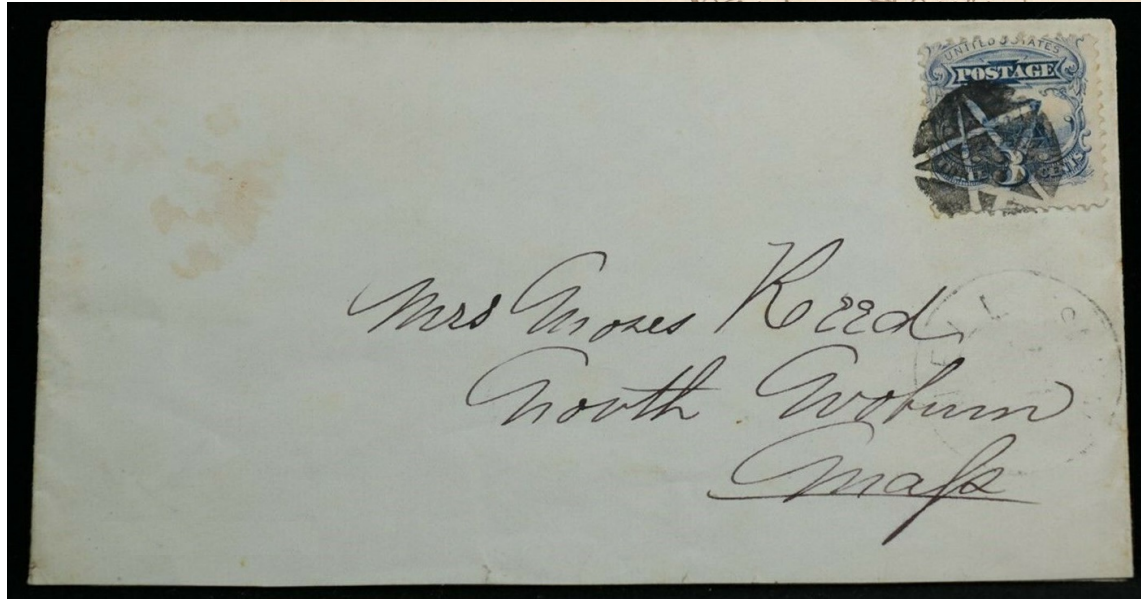 UNITED STATES
POSTAGE
3
CENTS
Mrs Moses Reed
North Woburn
Mass